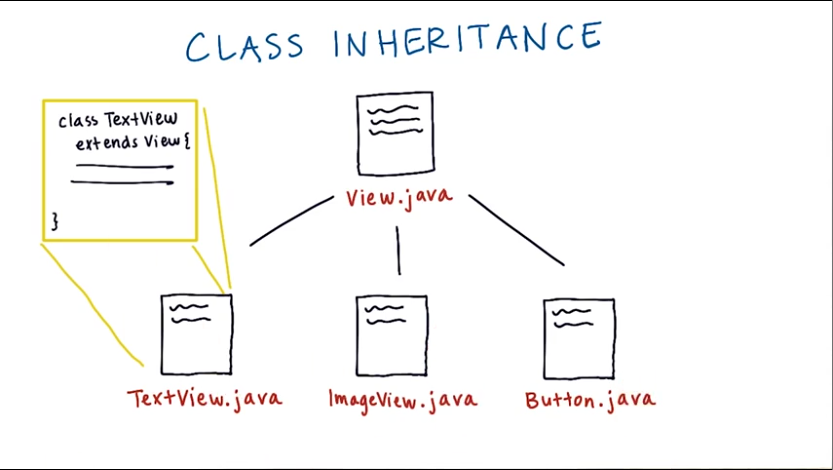 CLASS INHERITANCE
class TextView
extends View {
}
View.java
TextView.java
ImageView.java
Button.java